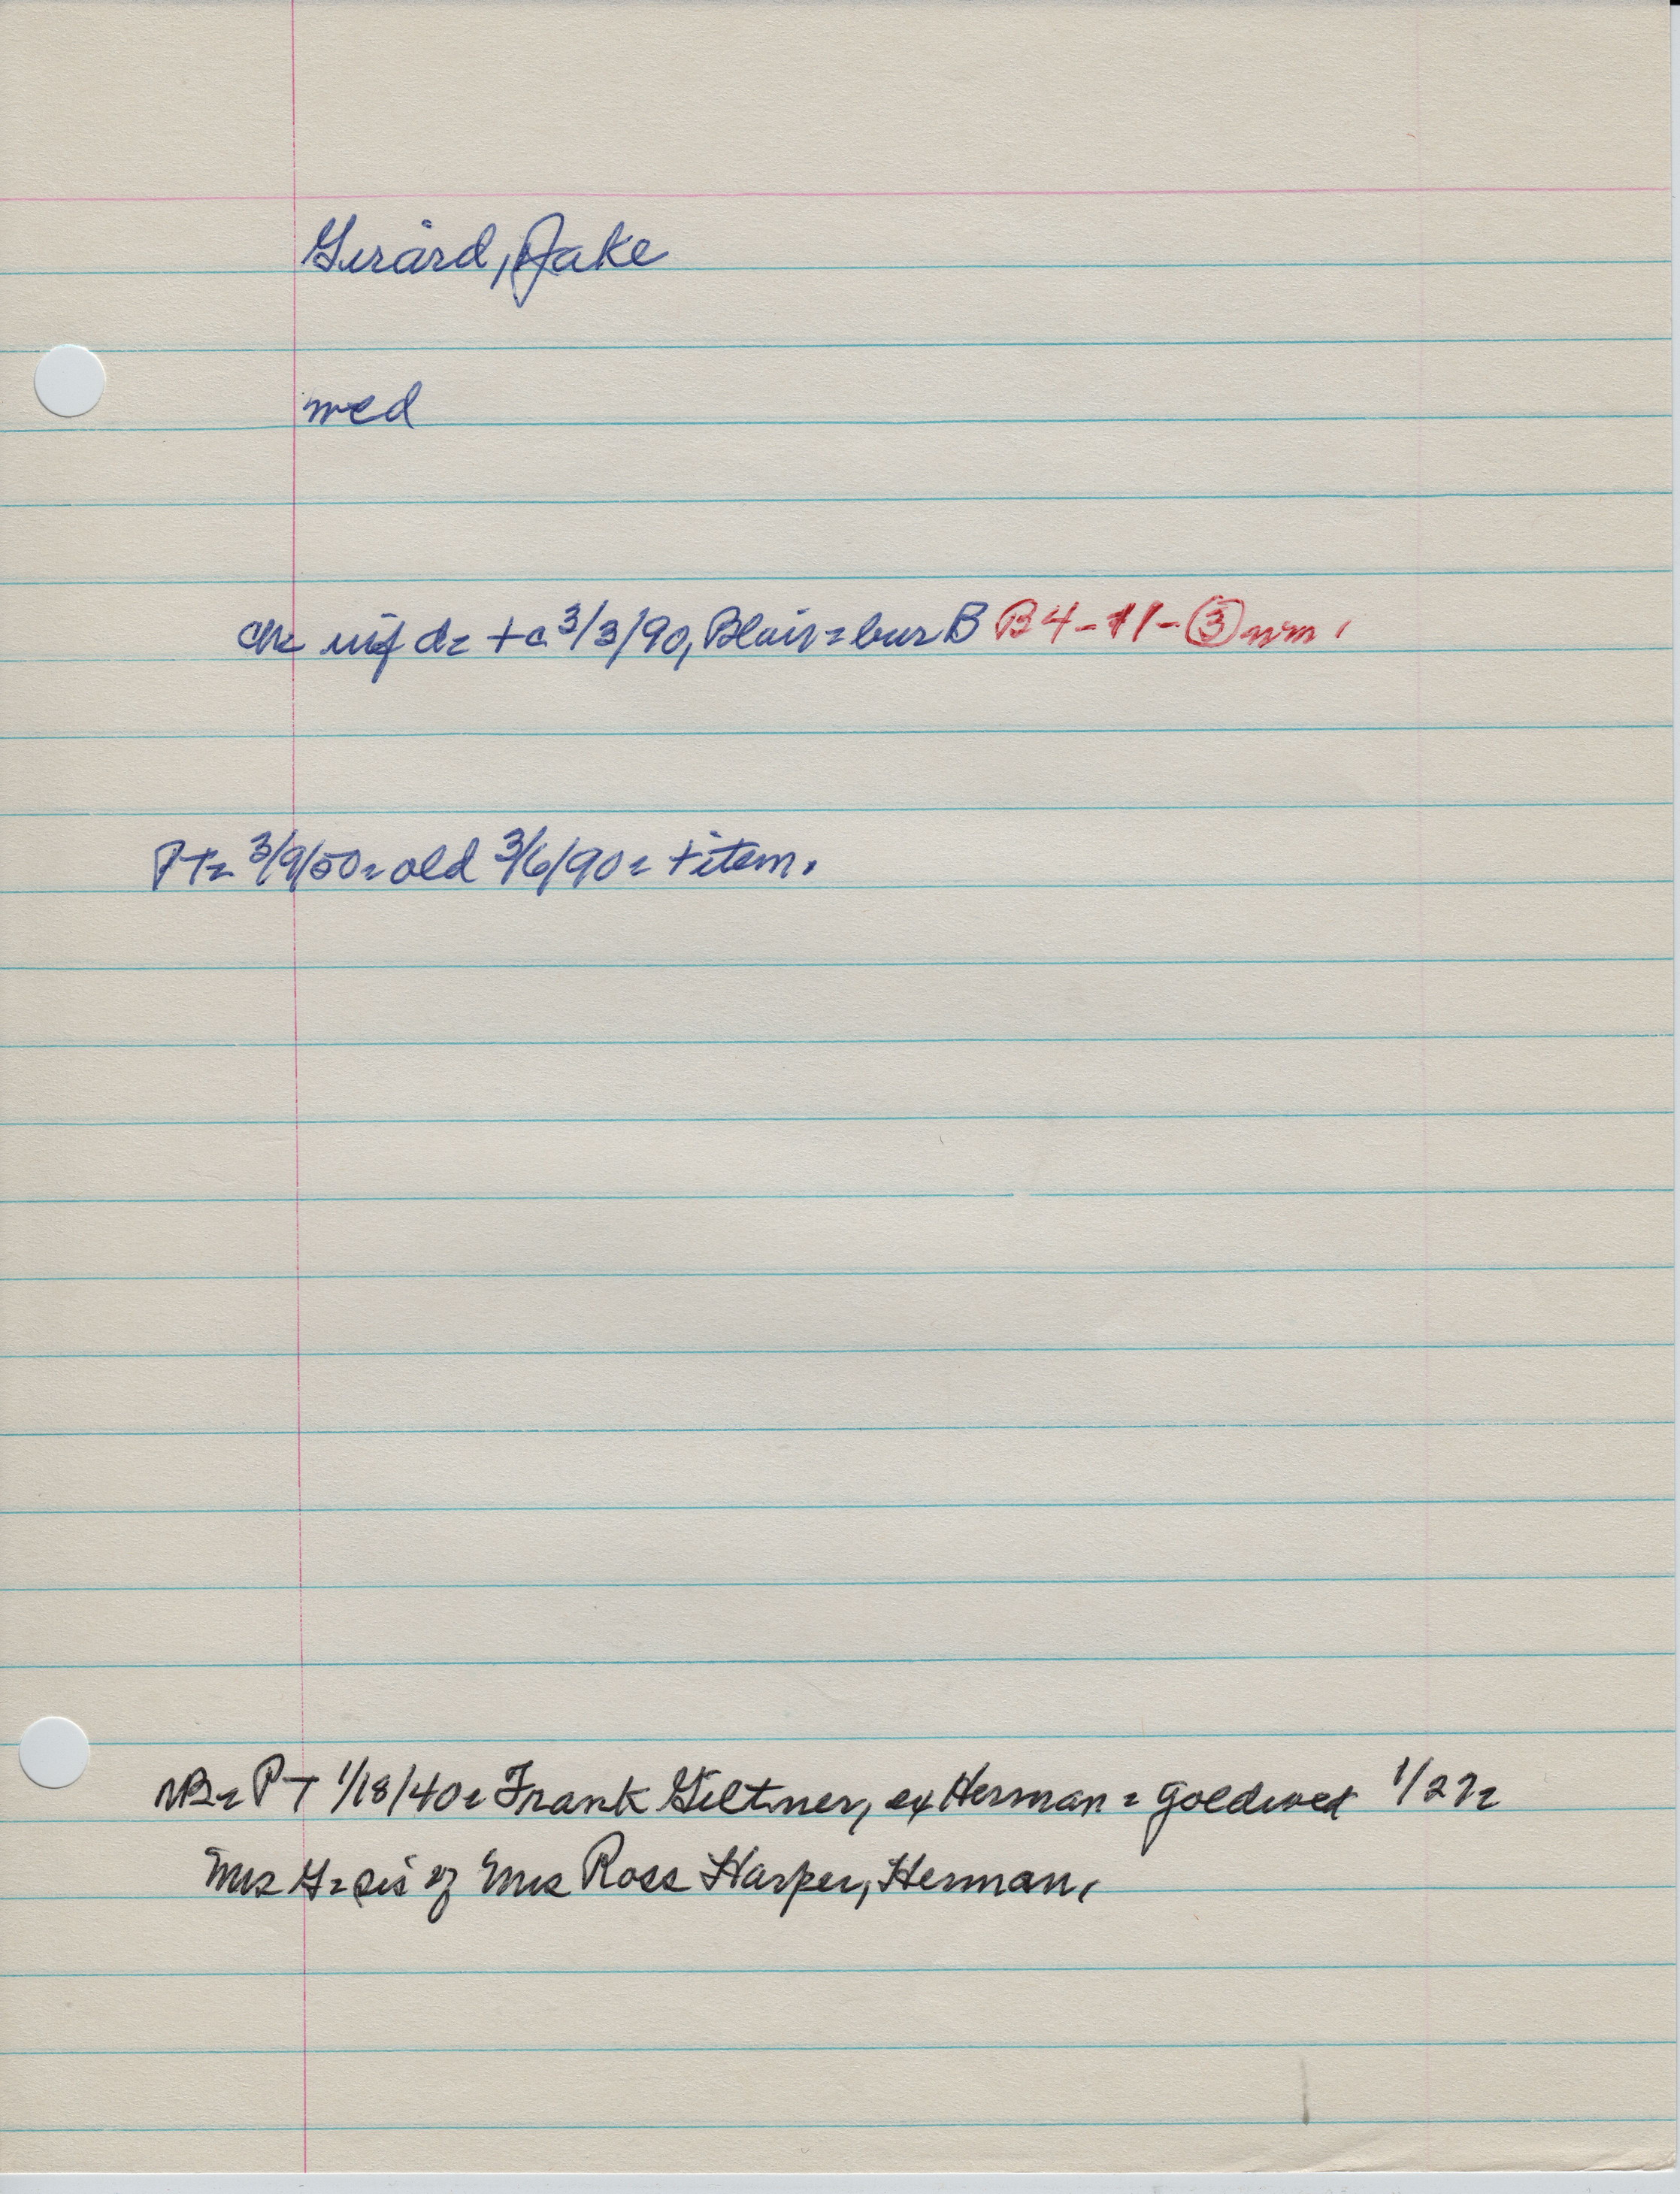 Girard, Jake
med
chr inf d= +a 3/3/90, Blair = bur B B4-11-③ nm.
PT= 3/9/50= old 3/6/90= +item.
NB= PT 1/18/40= Frank Giltner, ex Herman = goldwed 1/22=
Mrs G= sis of Mrs Ross Harper, Herman,